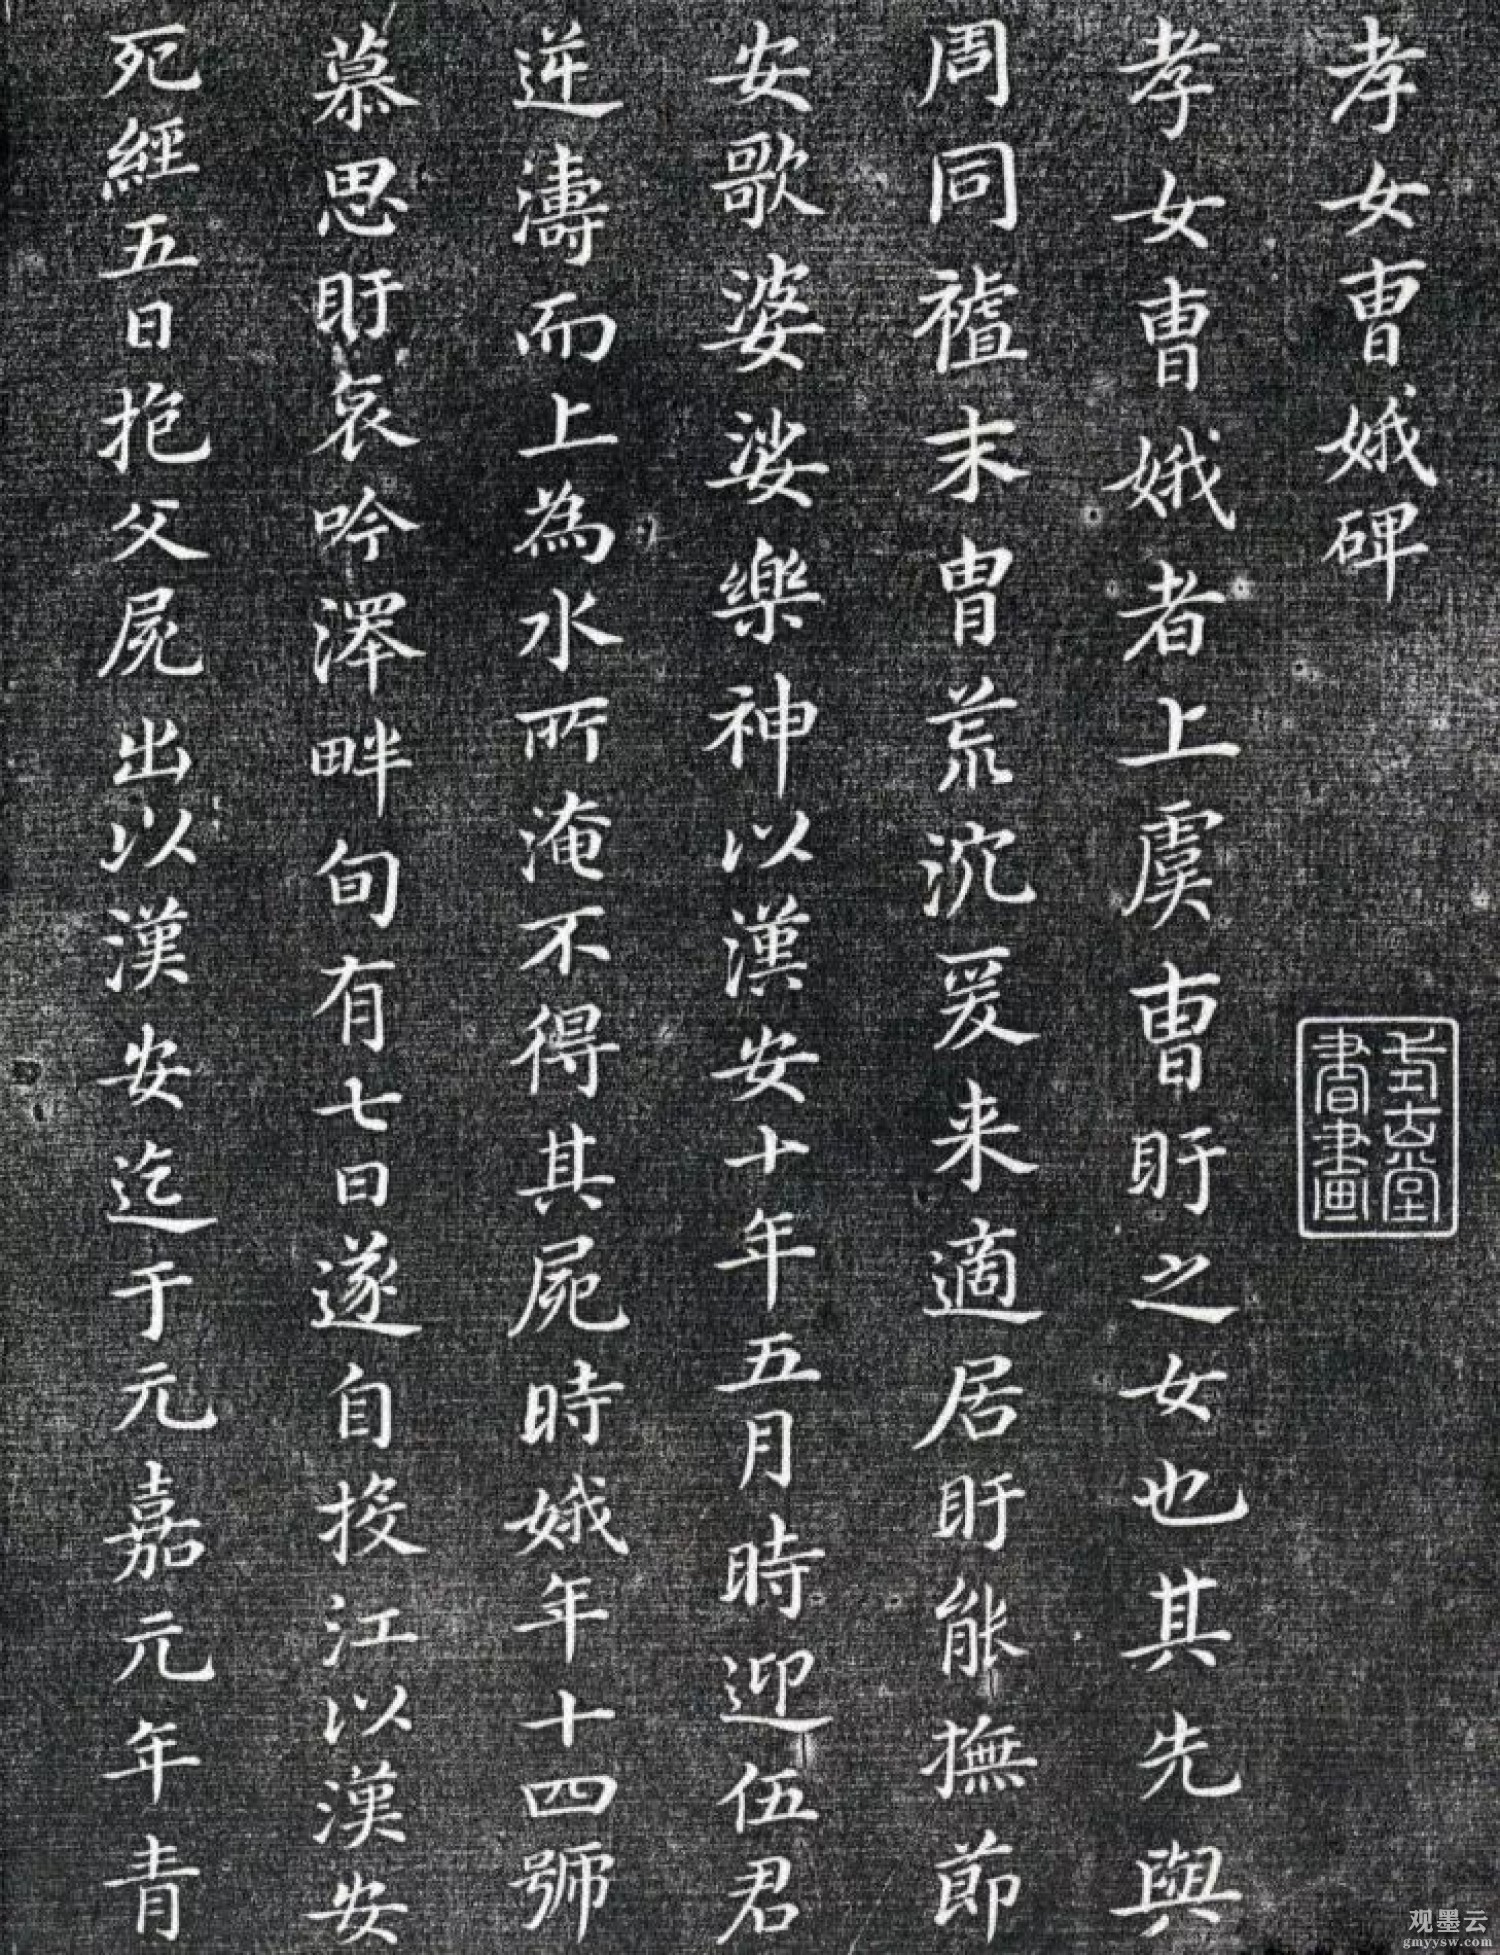 孝女曹娥碑
孝女曹娥者上虞曹盱之女也其先與
周同禮末胄荒沉爰来適居盱能撫節
安歌婆娑樂神以漢安十年五月時迎伍君
逆濤而上為水所淹不得其屍時娥年十四號
慕思盱哀吟澤畔旬有七日遂自投江以漢安
死經五日抱父屍出以漢安迄于元嘉元年青
書畫
观墨云
gmyysw.com